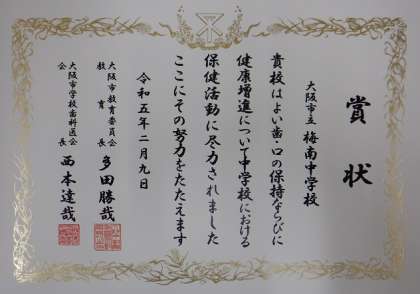 賞状
大阪市立 梅南中学校
貴校はよい歯・口の保持ならびに
健康増進について中学校における
保健活動に尽力されました
ここにその努力をたたえます
令和五年二月九日
大阪市教育委員会
教育長 多田勝哉
大阪市学校歯科医会
会長 西本達哉